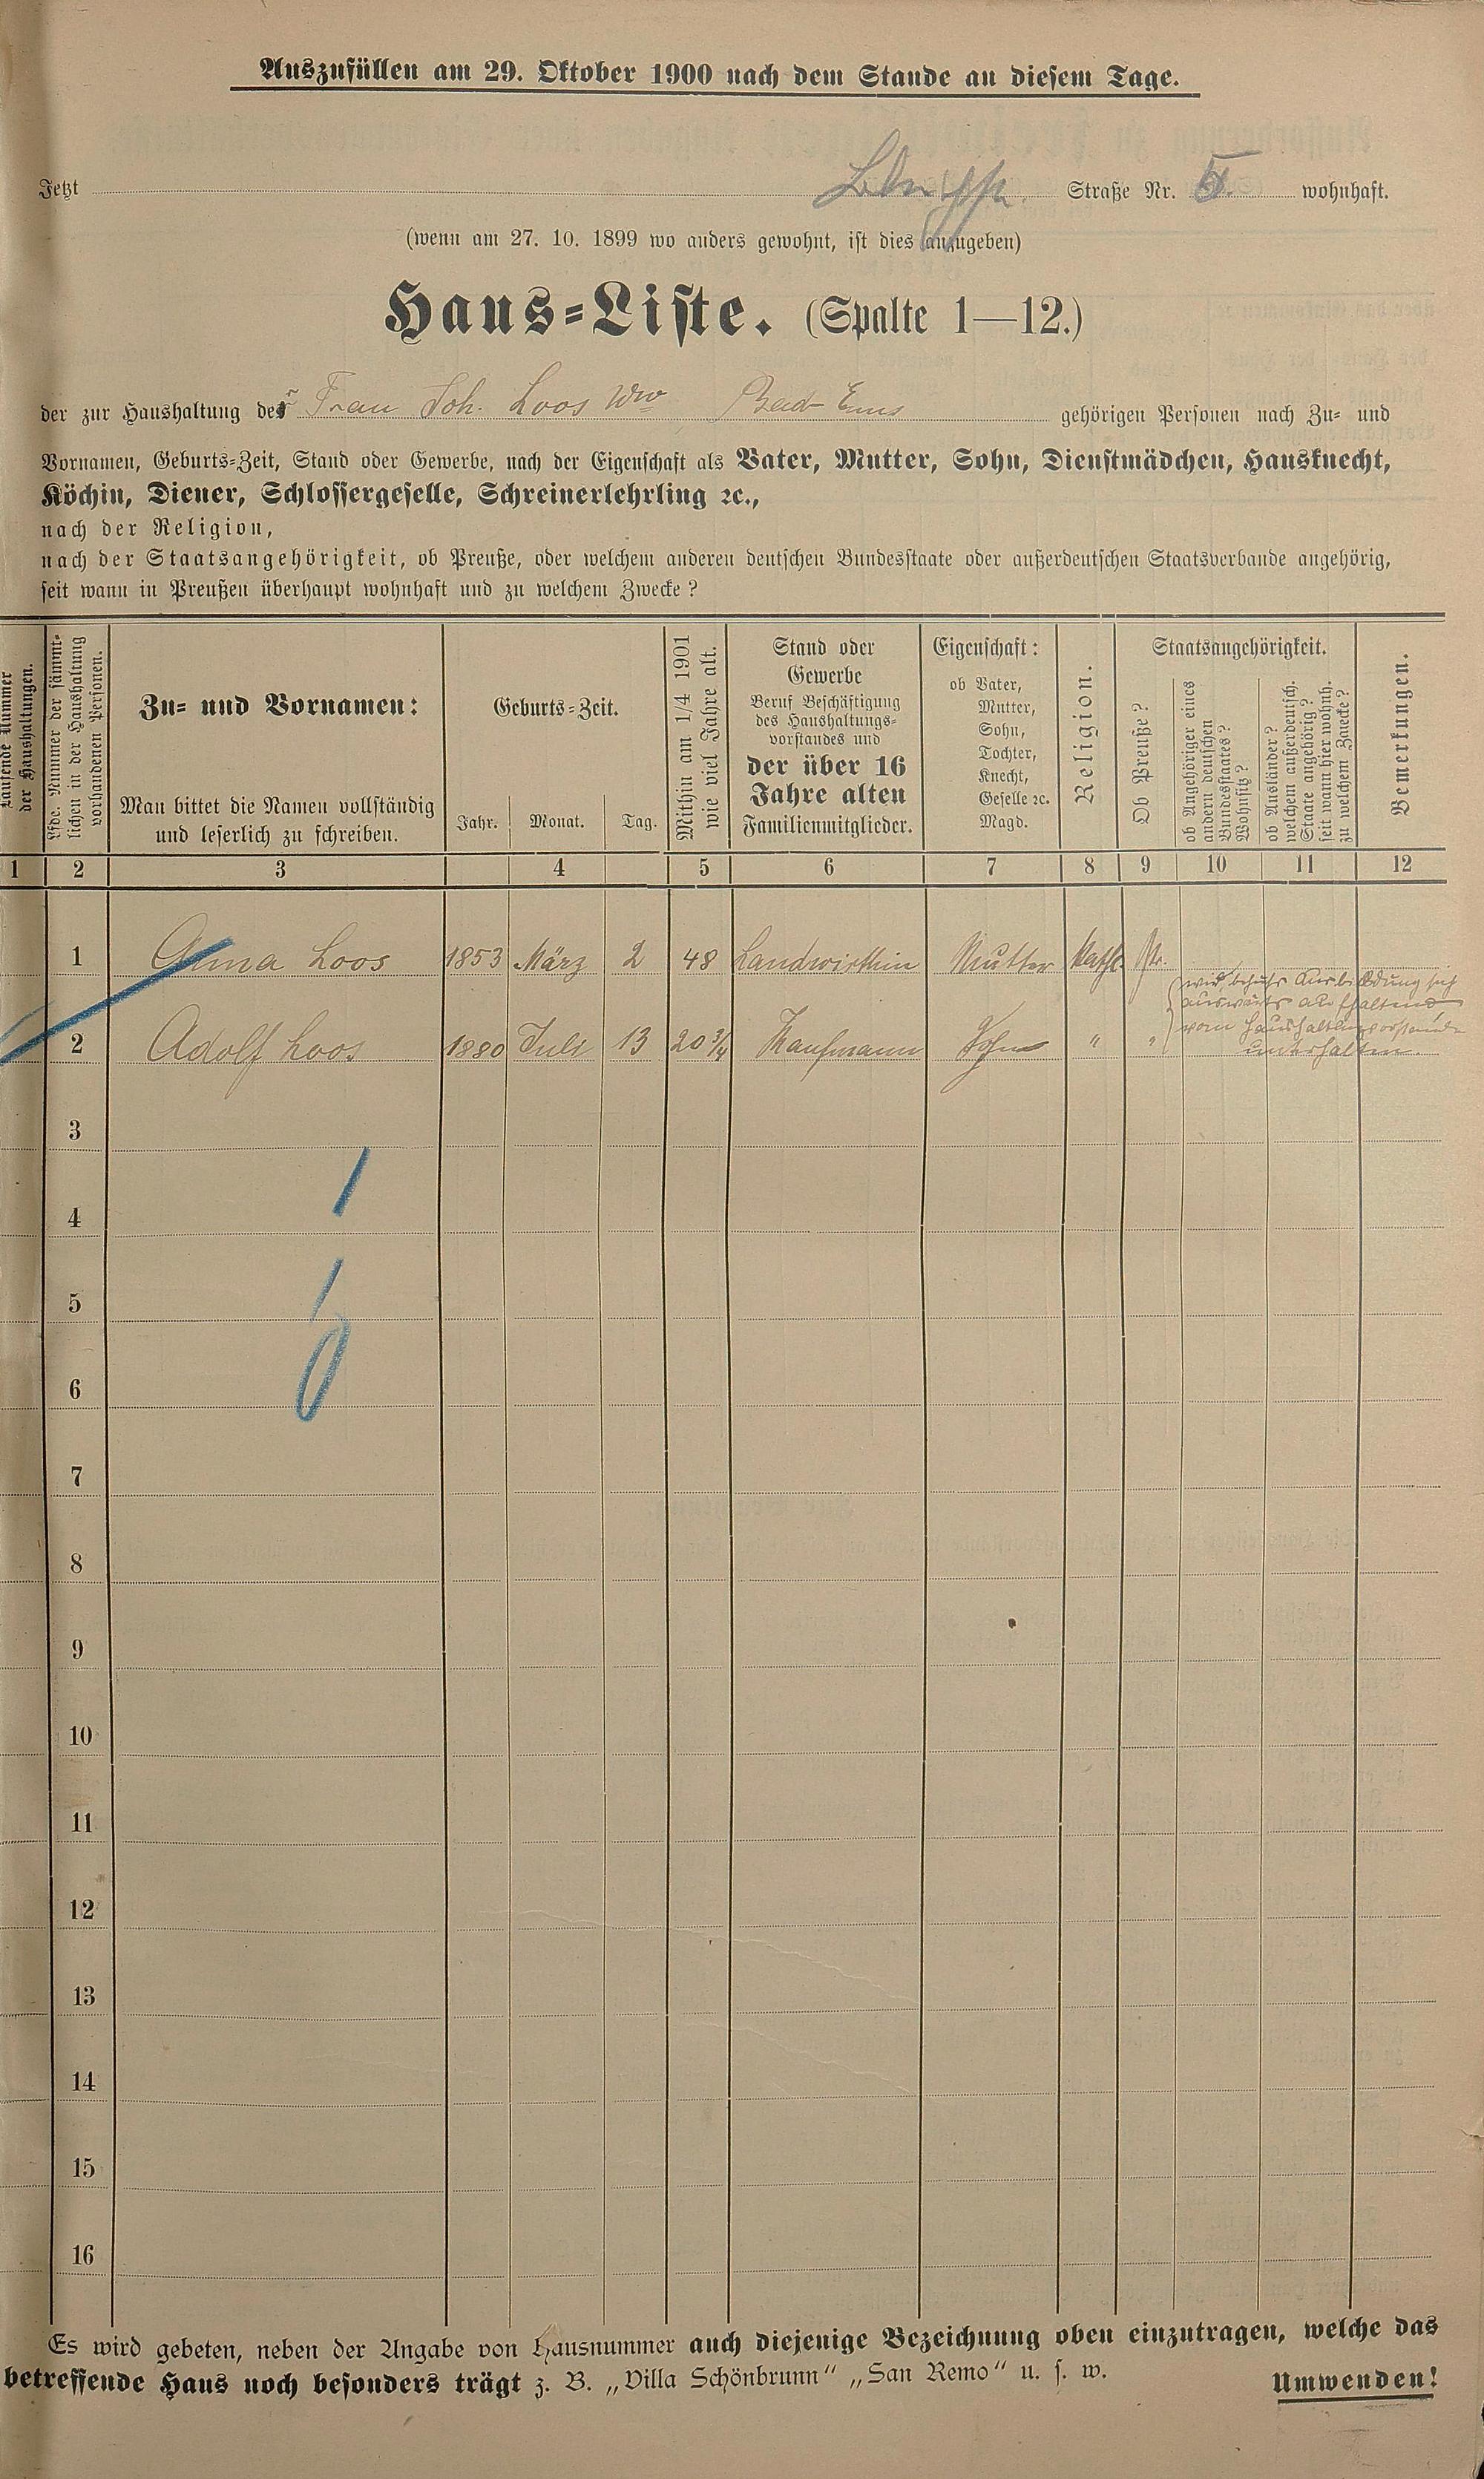 Auszufüllen am 29. Oktober 1900 nach dem Stande an diesem Tage.
Jetzt Straße Nr. wohnhaft.
(wenn am 27. 10. 1899 wo anders gewohnt, ist dies anzugeben)
Haus-Liste. (Spalte 1—12.)
der zur Haushaltung der Frau Joh. Loos Ww Bad-Ems gehörigen Personen nach Zu- und
Vornamen, Geburts-Zeit, Stand oder Gewerbe, nach der Eigenschaft als Vater, Mutter, Sohn, Dienstmädchen, Hausknecht,
Köchin, Diener, Schlossergeselle, Schreinerlehrling ꝛc.,
nach der Religion,
nach der Staatsangehörigkeit, ob Preuße, oder welchem anderen deutschen Bundesstaate oder außerdeutschen Staatsverbande angehörig,
seit wann in Preußen überhaupt wohnhaft und zu welchem Zwecke?
Laufende Nummer
der Haushaltungen.
Lfde. Nummer der sämmt-
lichen in der Haushaltung
vorhandenen Personen.
Zu- und Vornamen:
Man bittet die Namen vollständig
und leserlich zu schreiben.
Geburts-Zeit.
Jahr. Monat. Tag.
Mithin am 1/4 1901
wie viel Jahre alt.
Stand oder
Gewerbe
Beruf Beschäftigung
des Haushaltungs-
vorstandes und
der über 16
Jahre alten
Familienmitglieder.
Eigenschaft:
ob Vater,
Mutter,
Sohn,
Tochter,
Knecht,
Geselle ꝛc.
Magd.
Religion.
Staatsangehörigkeit.
Ob Preuße?
ob Angehöriger eines
andern deutschen
Bundesstaates?
Wohnsitz?
ob Ausländer?
welchem außerdeutsch.
Staate angehörig?
seit wann hier wohnh.
zu welchem Zwecke?
Bemerkungen.
1 2 3 4 5 6 7 8 9 10 11 12
1 Anna Loos 1853 März 2 48 Landwirthin Mutter Kathl. Pr.
wird behufs Ausbildung sich
auswärts aufhaltend
vom Haushaltungsvorstande
unterhalten.
2 Adolf Loos 1880 Juli 13 20 3/4 Kaufmann Sohn " "
3
4
5
6
7
8
9
10
11
12
13
14
15
16
Es wird gebeten, neben der Angabe von Hausnummer auch diejenige Bezeichnung oben einzutragen, welche das
betreffende Haus noch besonders trägt z. B. „Villa Schönbrunn“ „San Remo“ u. s. w.
Umwenden!